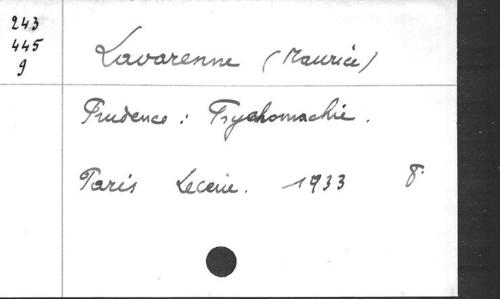 243
445
9
Lavarenne (Maurice)
Prudence : Psychomachie.
Paris Lecène. 1933 8°